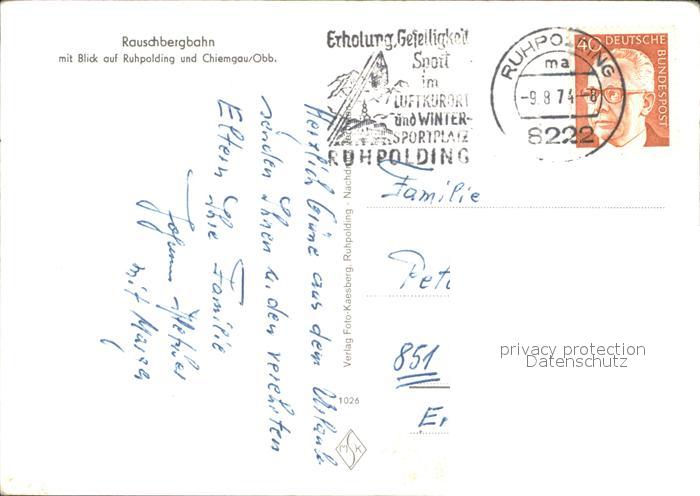 Rauschbergbahn
mit Blick auf Ruhpolding und Chiemgau/Obb.
Erholung, Geselligkeit
Sport
im
LUFTKURORT
und WINTER-
SPORTPLATZ
RUHPOLDING
RUHPOLDING
ma
-9.8.74-8
8222
40 DEUTSCHE BUNDESPOST
Herzlich Grüße aus dem Urlaub
senden Ihnen u. den verehrten
Eltern Ihre Familie
Johann
mit
Verlag Foto-Kaesberg, Ruhpolding - Nachdr
1026
MSK
Familie
Pet
851
Er
privacy protection
Datenschutz